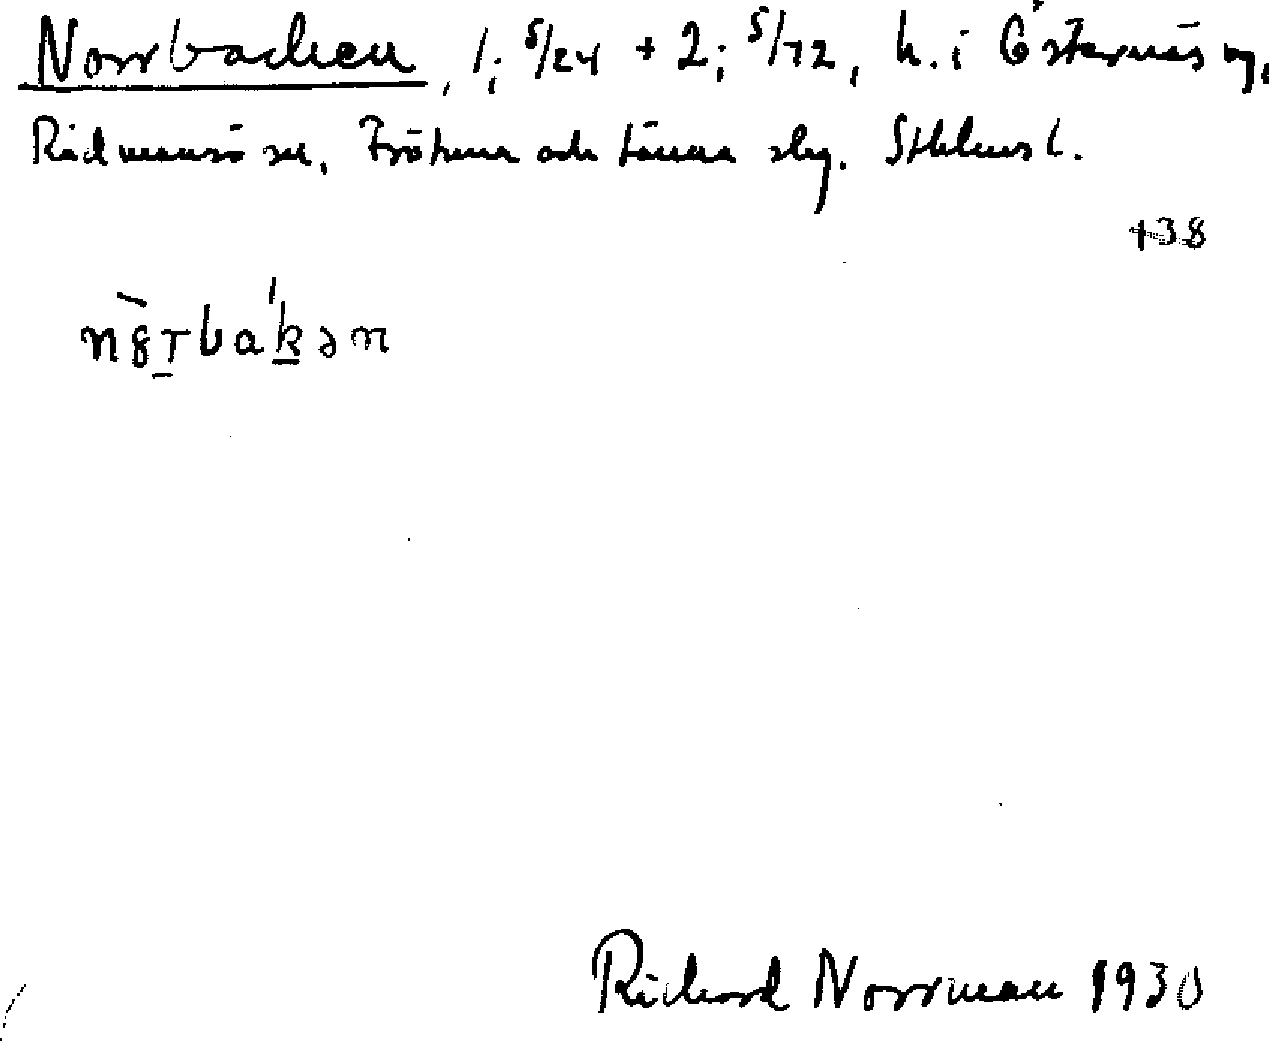 Norrbacken, 1; 5/24 + 2; 5/72, h. i Östernäs by,
Rådmansö sn. Fröhuna och Länna slg. Sthlms l.
+38
Richard Norrman 1930